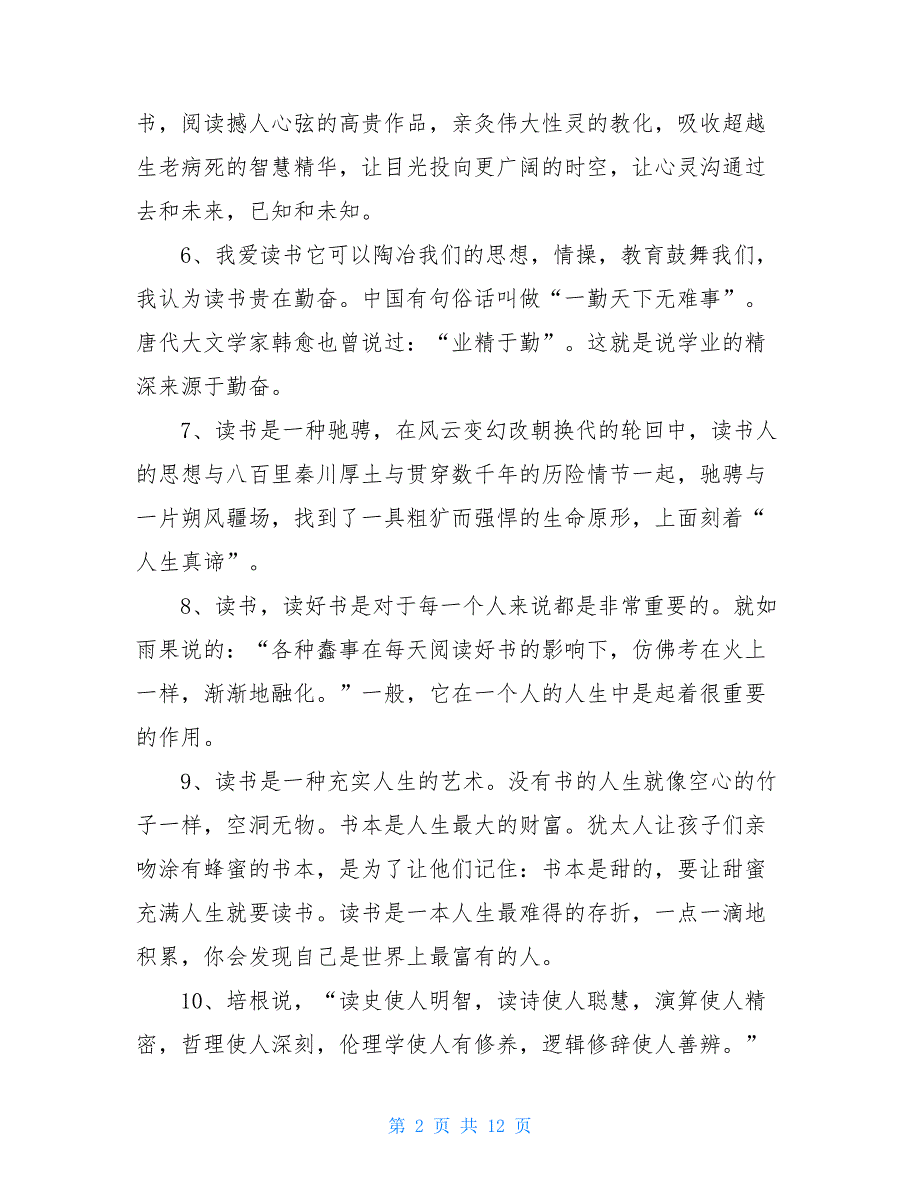 书，阅读撼人心弦的高贵作品，亲灸伟大性灵的教化，吸收超越
生老病死的智慧精华，让目光投向更广阔的时空，让心灵沟通过
去和未来，已知和未知。
6、我爱读书它可以陶冶我们的思想，情操，教育鼓舞我们，
我认为读书贵在勤奋。中国有句俗话叫做“一勤天下无难事”。
唐代大文学家韩愈也曾说过：“业精于勤”。这就是说学业的精
深来源于勤奋。
7、读书是一种驰骋，在风云变幻改朝换代的轮回中，读书人
的思想与八百里秦川厚土与贯穿数千年的历险情节一起，驰骋与
一片朔风疆场，找到了一具粗犷而强悍的生命原形，上面刻着“
人生真谛”。
8、读书，读好书是对于每一个人来说都是非常重要的。就如
雨果说的：“各种蠢事在每天阅读好书的影响下，仿佛考在火上
一样，渐渐地融化。”一般，它在一个人的人生中是起着很重要
的作用。
9、读书是一种充实人生的艺术。没有书的人生就像空心的竹
子一样，空洞无物。书本是人生最大的财富。犹太人让孩子们亲
吻涂有蜂蜜的书本，是为了让他们记住：书本是甜的，要让甜蜜
充满人生就要读书。读书是一本人生最难得的存折，一点一滴地
积累，你会发现自己是世界上最富有的人。
10、培根说，“读史使人明智，读诗使人聪慧，演算使人精
密，哲理使人深刻，伦理学使人有修养，逻辑修辞使人善辨。”
第 2 页 共 12 页